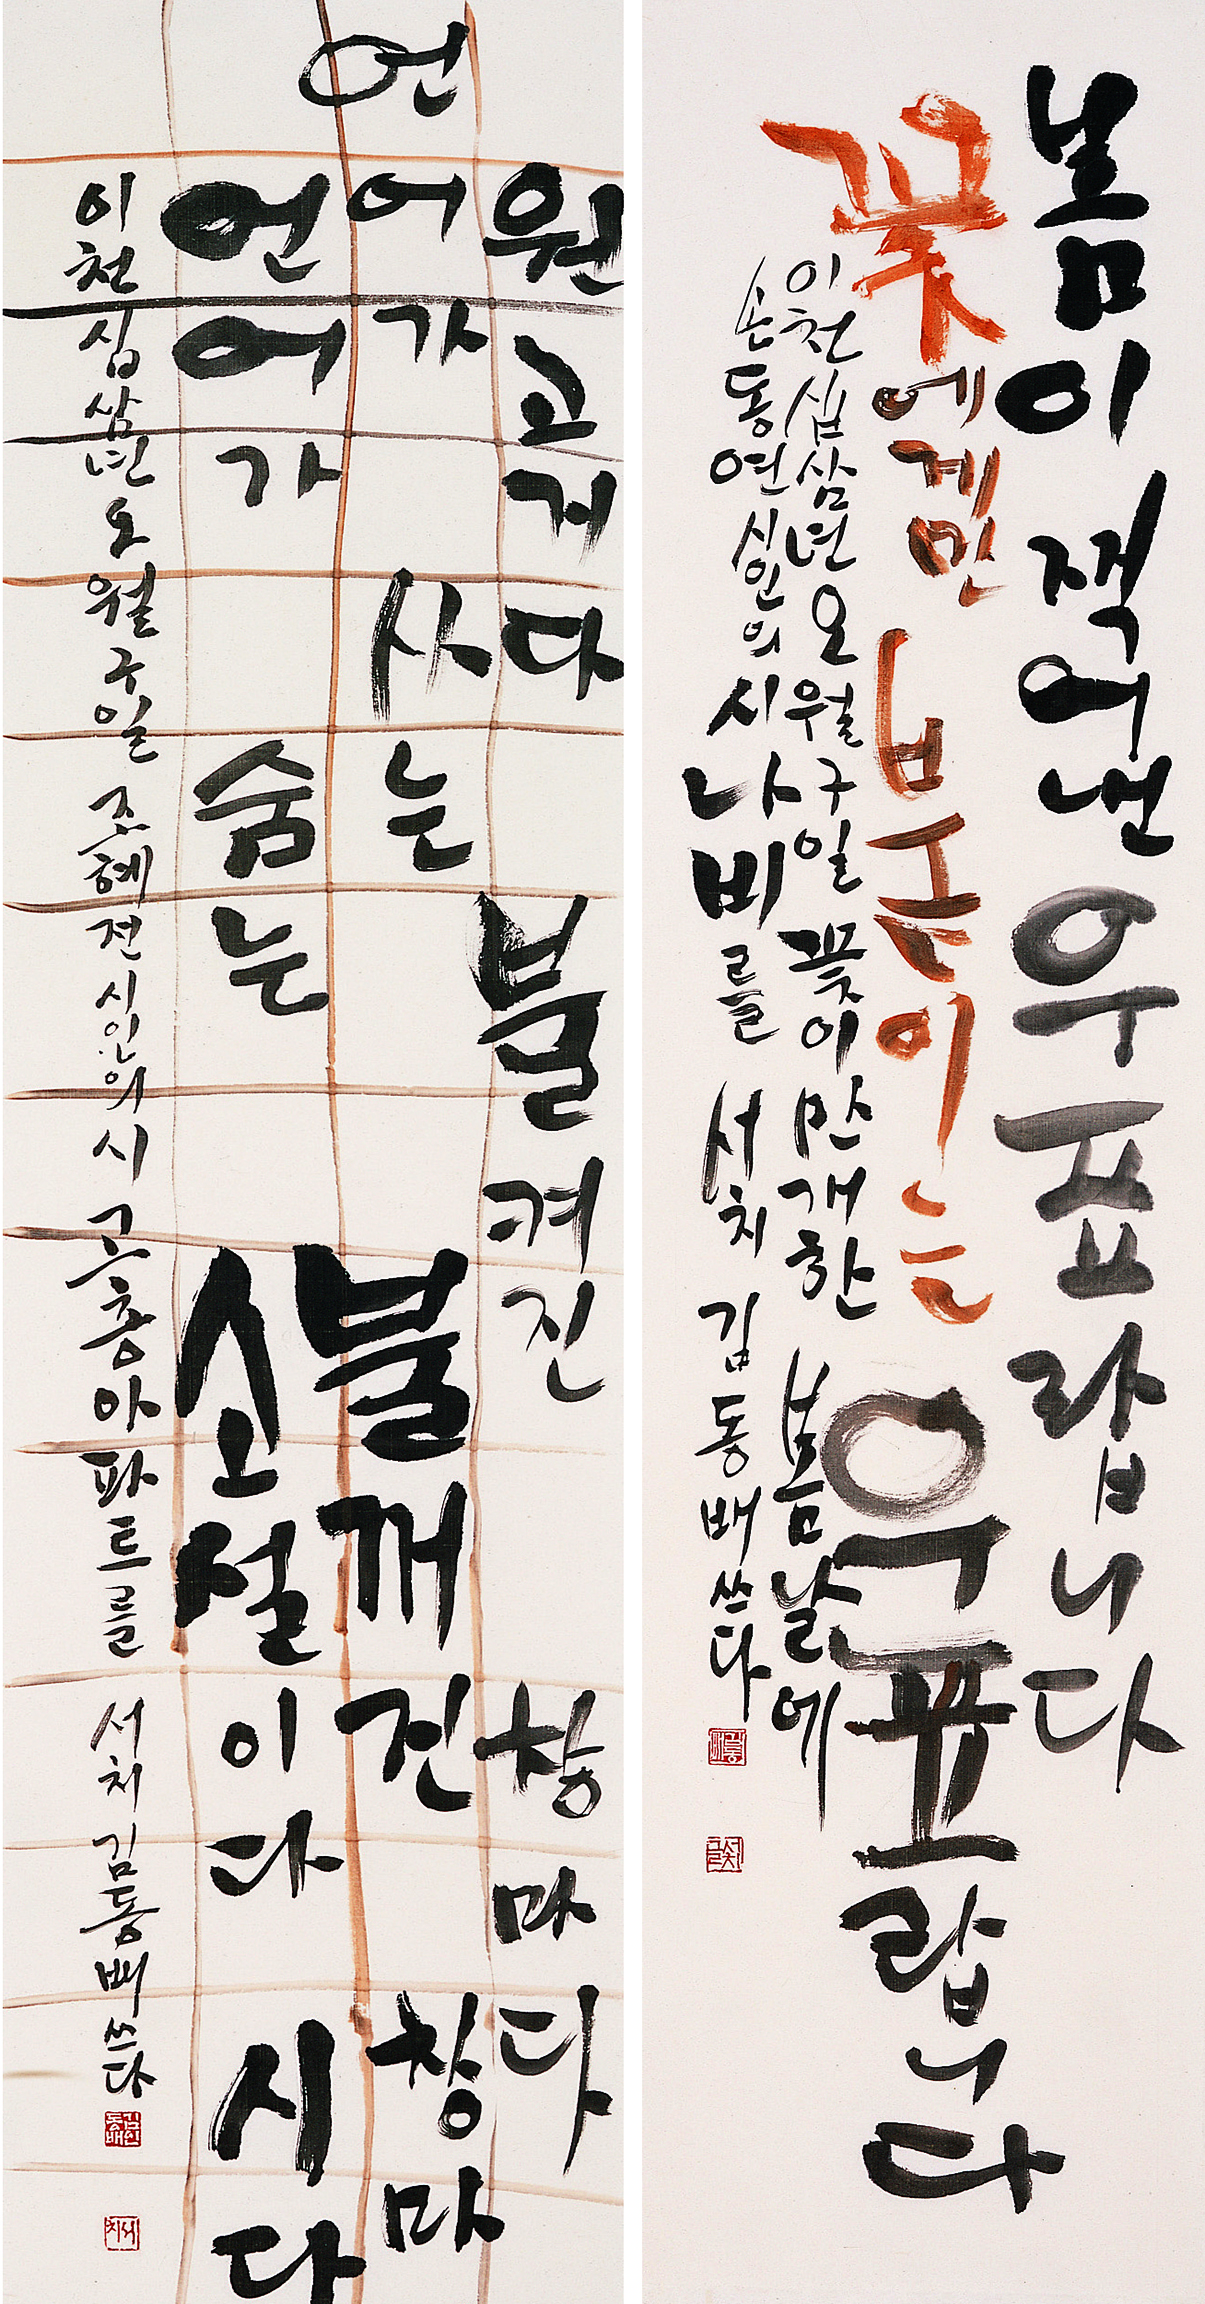 봄이 찍어낸 우표랍니다
꽃에게만 붙이는 우표랍니다
이천십삼년 오월 구일 꽃이 만개한 봄날에
손동연 시인의 시 나비를 서치 김동배 쓰다
원고지다 불켜진 창마다
언어가 사는 불꺼진 창마
언어가 숨는 소설이다 시다
이천십삼년 오월 구일 조혜전 시인의 시 고층아파트를 서치 김동배 쓰다